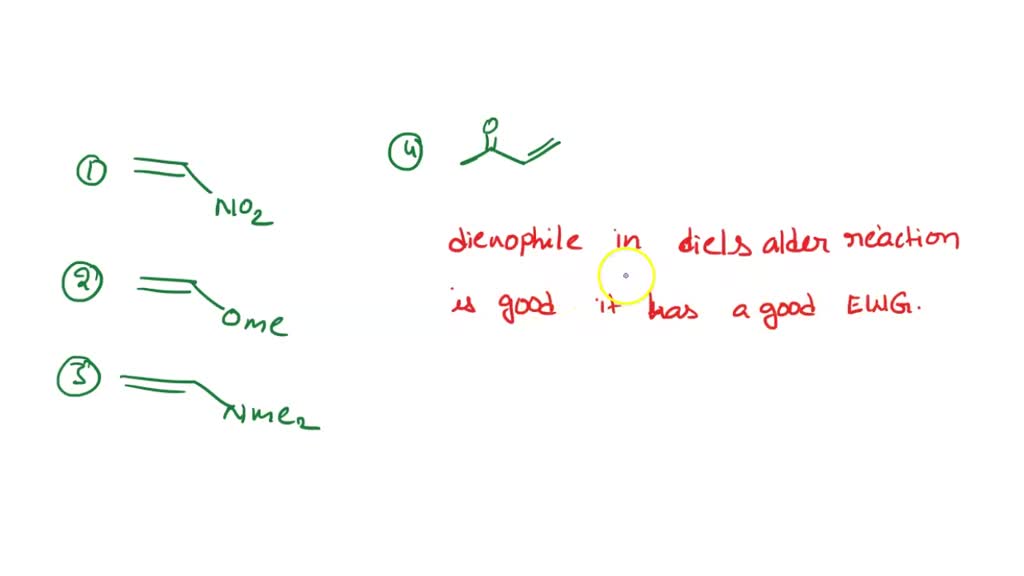 ① NO2
② Ome
③ Nme2
④ O
dienophile in diels alder reaction
is good it has a good EWG.